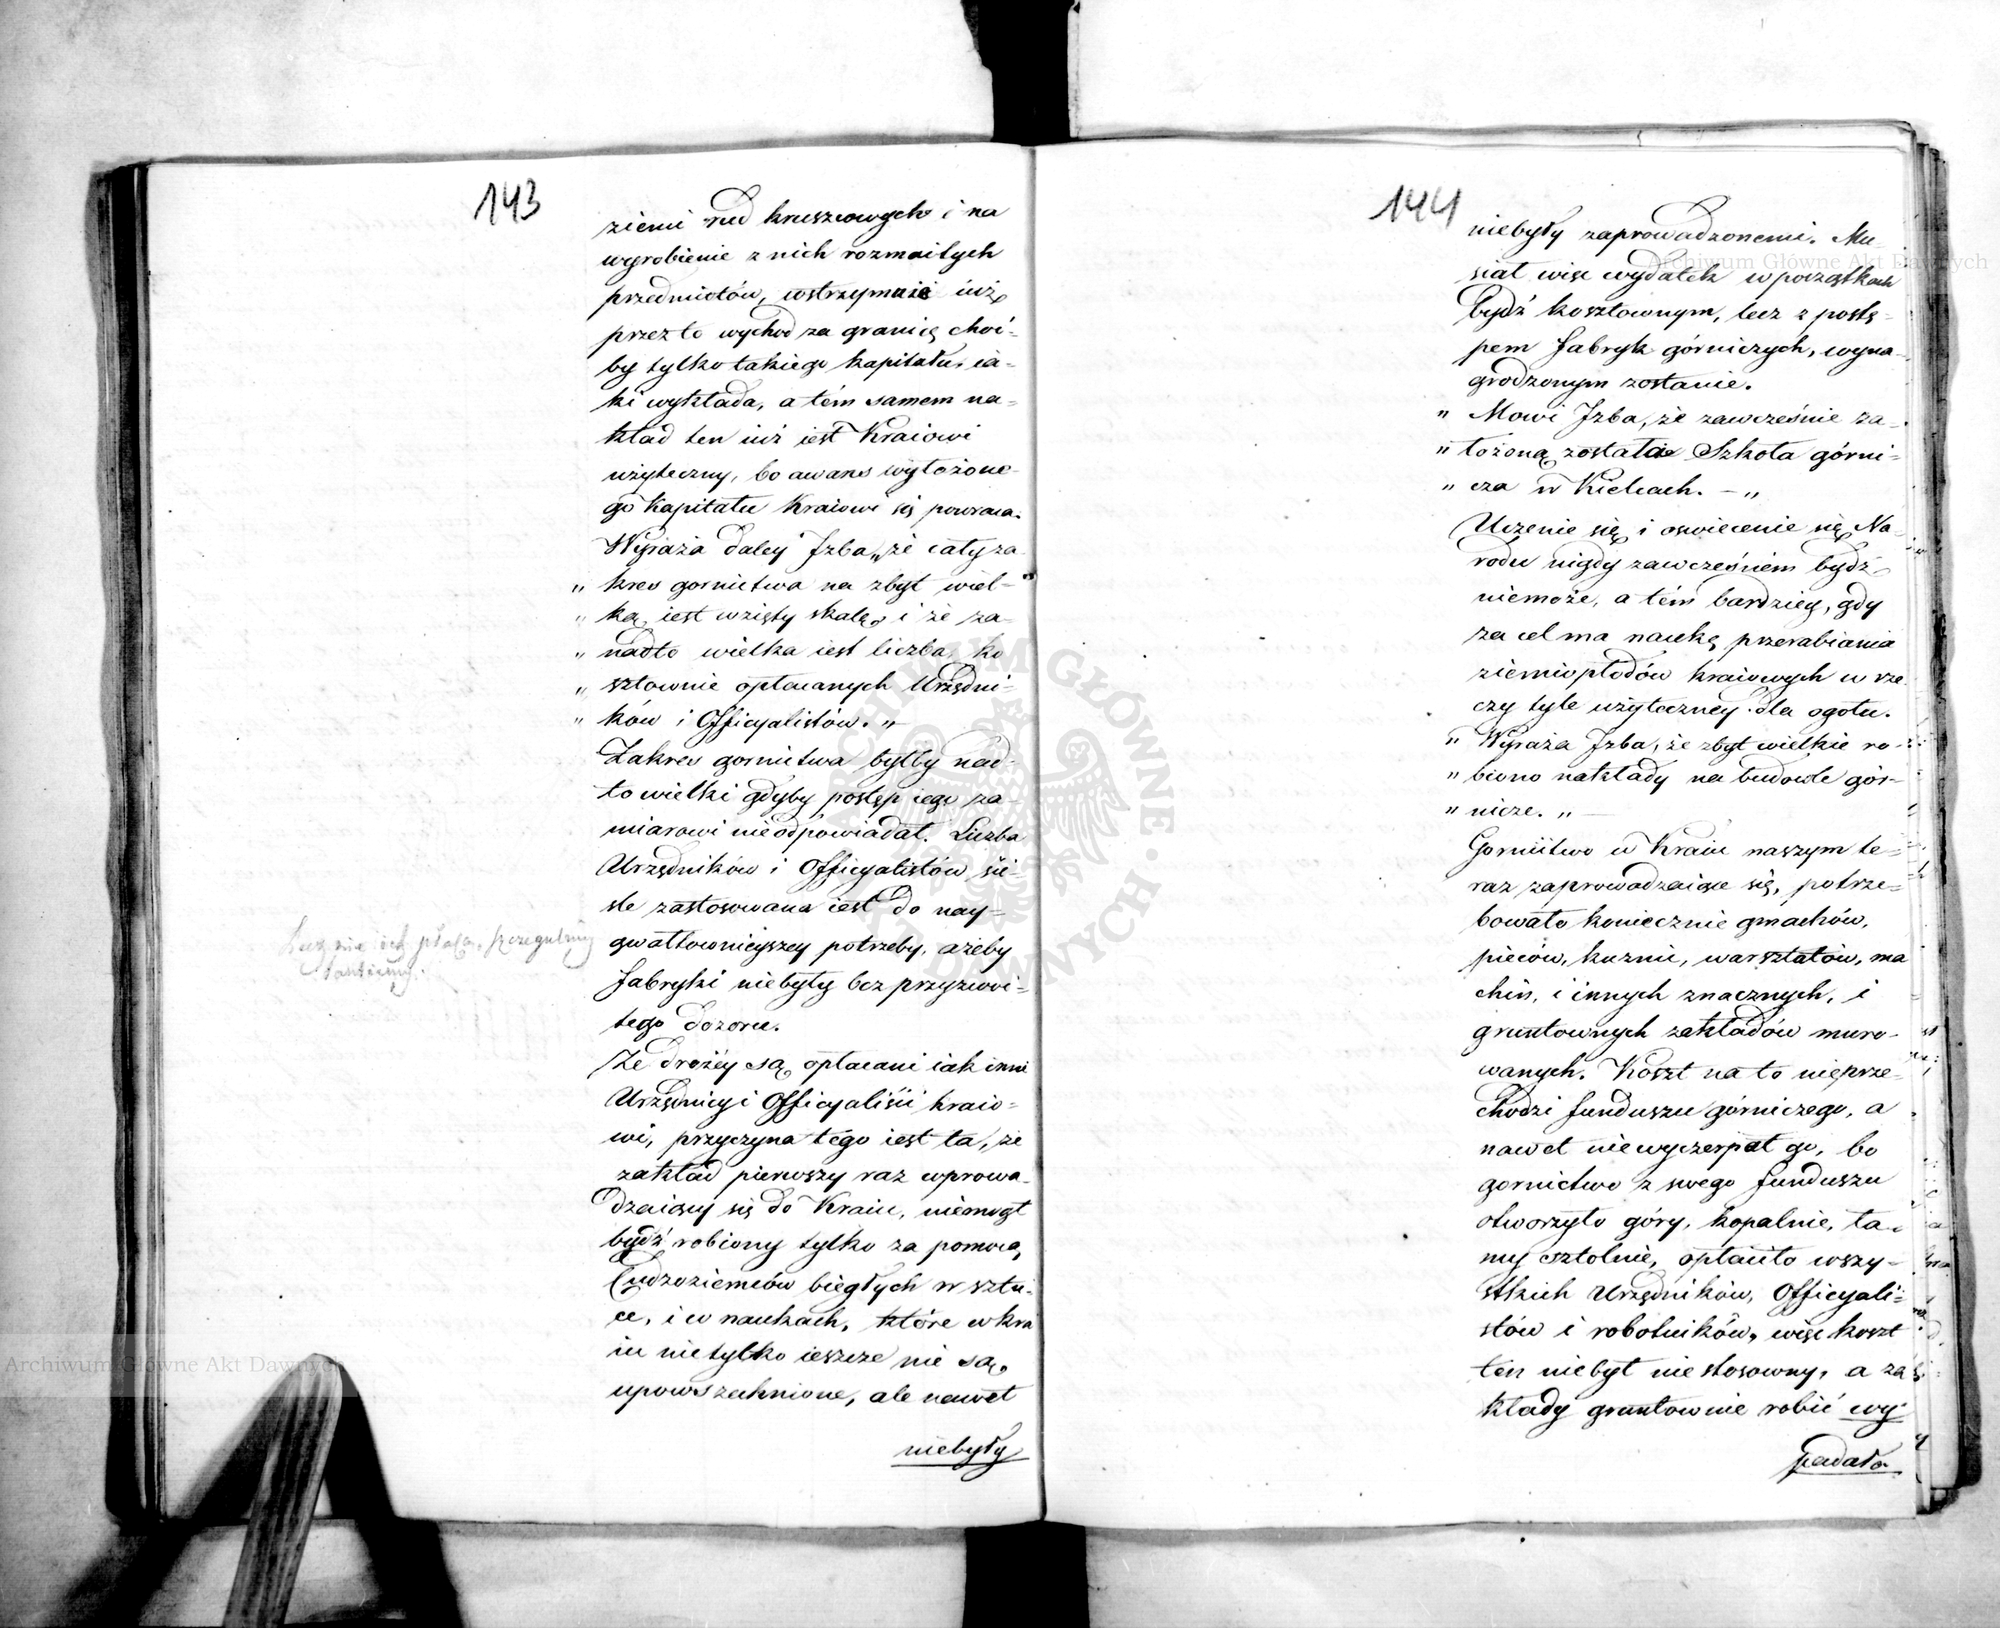 143
ziemi rud kruszcowych i na
wyrobienie z nich rozmaitych
przedmiotów, wstrzymuie iuż
przez to wychod za granicę choć-
by tylko takiego kapitału, ia-
ki wykłada, a tém samem na-
kład ten iuż iest Kraiowi
użyteczny, bo awans wyłożone-
go Kapitału Kraiowi się powraca.
Wyraża daley Izba „że cały za-
„ kres gornictwa na zbyt wiel-
„ ką iest wzięty skalę, i że za-
„ nadto wielka iest liczba ko
„ sztownie opłacanych Urzędni-
„ ków i Officyalistów. „
Zakres gornictwa byłby nad-
to wielki gdyby postęp iego za-
miarowi nieodpowiadał. Liczba
Urzędników i Officyalistów ści-
sle zastosowana iest do nay-
gwałtownieyszey potrzeby, ażeby
fabryki niebyły bez przyzwoi-
tego dozoru.
Że drożéy są opłacani iak inni
Urzędnicy i Officyaliści kraio-
wi, przyczyna tégo iest ta, że
zakład pierwszy raz wprowa-
dzaiący się do Kraiu, niemógł
bydź robiony tylko za pomocą
Cudzoziemców biegłych w sztu-
ce, i w naukach, które w kra
iu nietylko ieszcze nie są
upowszechnione, ale nawet
niebyły
144
niebyły zaprowadzonemi. Mu-
siał więc wydatek w początkach
bydź kosztownym, lecz z postę-
pem fabryk górniczych, wyna-
grodzonym zostanie.
„ Mowi Izba, że zawcześnie za-
„ łożoną została Szkoła górni-
„ cza w Kielcach. – „
Uczenie się i oswiecenie się Na-
rodu nigdy zawcześniem bydź
niemoże, a tém bardziey, gdy
za cel ma naukę przerabiania
ziemiopłodów kraiowych w rze-
czy tyle użyteczney dla ogołu.
„ Wyraża Izba, że zbyt wielkie ro-
„ biono nakłady na budowle gór-
„ nicze. „
Gornictwo w Kraiu naszym te-
raz zaprowadzaiące się, potrze-
bowało koniecznie gmachów,
pieców, kuznic, warsztatów, ma
chin, i innych znacznych, i
gruntownych zakładów muro-
wanych. Koszt na to nieprze-
chodzi funduszu górniczego, a
nawet niewyczerpał go, bo
gornictwo z swego funduszu
otworzyło góry, kopalnie, ta-
my sztolnie, opłaciło wszy-
stkich Urzędników, Officyali-
stów i robotników, więc koszt
ten niebył niestosowny, a za
kłady gruntownie robić wy-
padało
Archiwum Główne Akt Dawnych
Archiwum Główne Akt Dawnych
ARCHIWUM GŁÓWNE AKT DAWNYCH